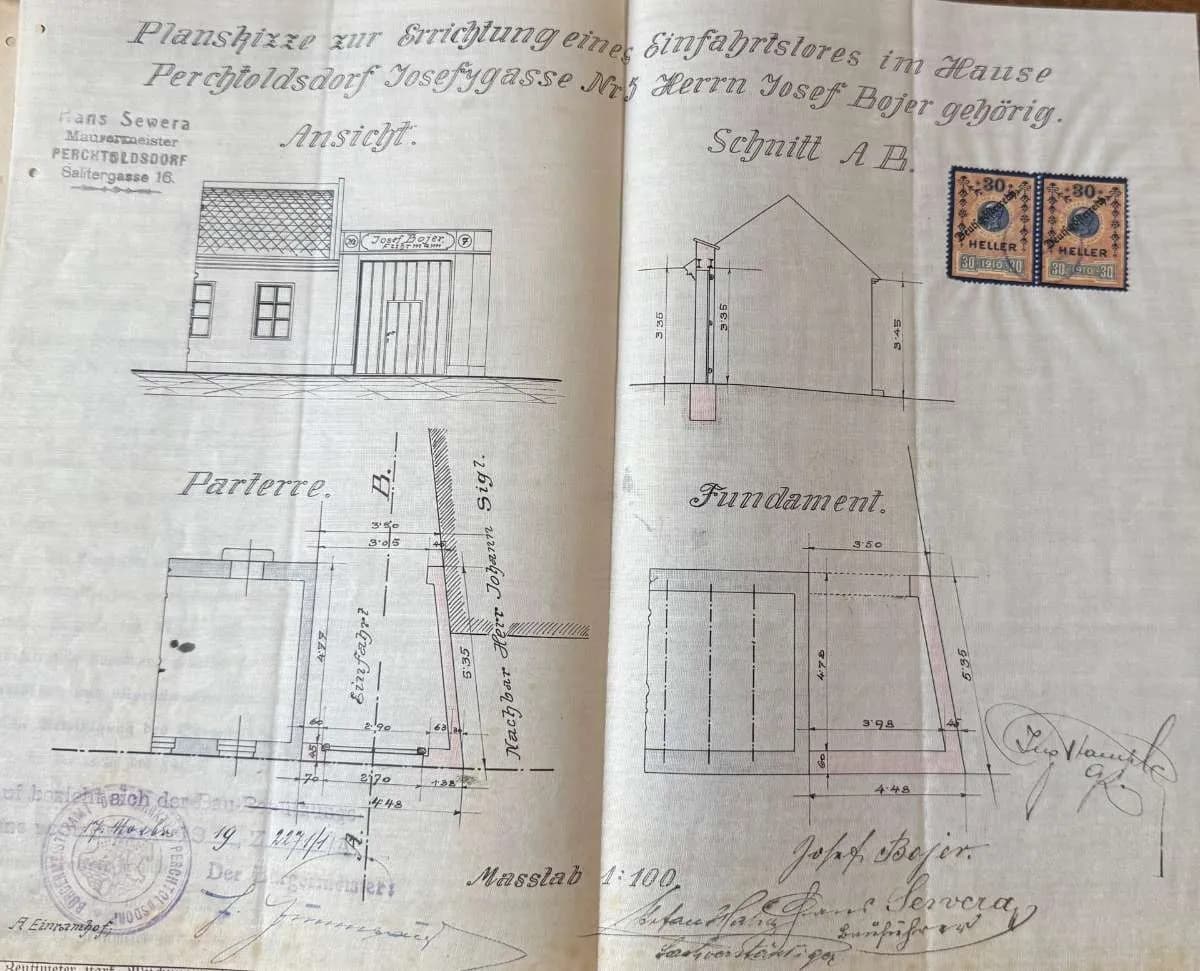 Planskizze zur Errichtung eines Einfahrtstores im Hause
Perchtoldsdorf Josefygasse Nr 5 Herrn Josef Bojer gehörig.
Hans Sewera
Maurermeister
PERCHTOLDSDORF
Salitergasse 16.
Ansicht.
Schnitt A B.
30 30
HELLER HELLER
30 1910 30 30 1910 30
Josef Bojer
7
3·35
3·35
3·45
Parterre.
B.
Fundament.
3·50
3·05
45
Nachbar Herr Johann Sigl.
Einfahrt
4·78
5·35
60
2·90
63
45
70
2·70
1·38
4·48
A.
3·50
4·78
5·35
3·98
45
60
4·48
bezieht sich der Bau-
19 2271/1
Der Bürgermeister:
BÜRGERMEISTERAMT PERCHTOLDSDORF
Masstab 1:100
Josef Bojer.
Hans Sewera
Bauführer
Sachverständiger
A Einramhof.